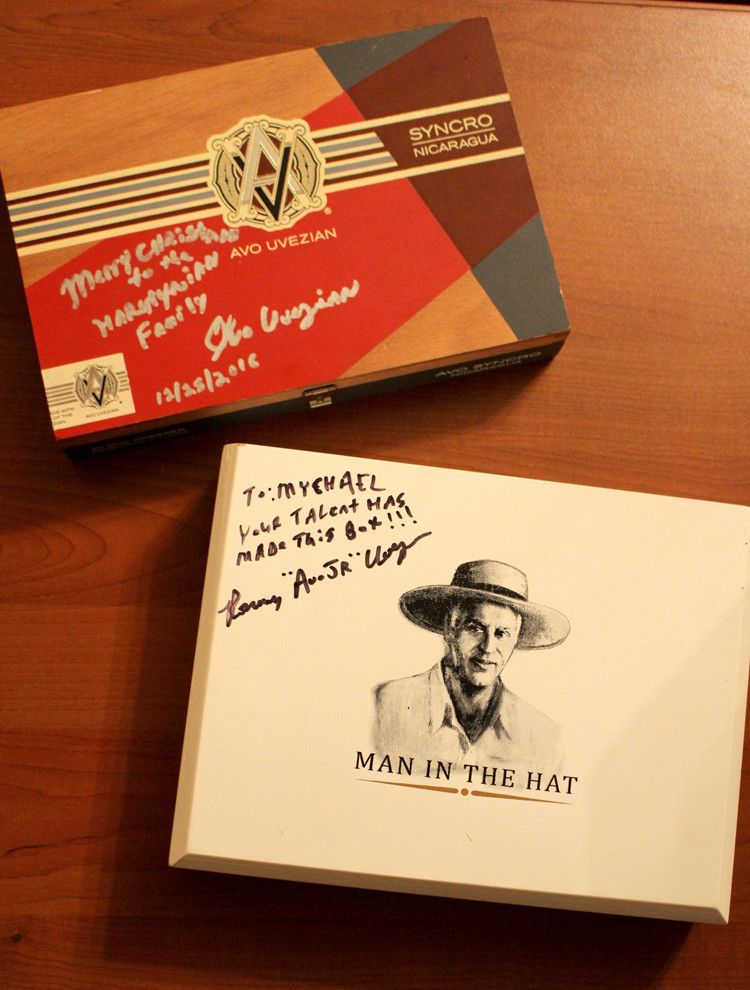 SYNCRO
NICARAGUA
AVO UVEZIAN
Merry CHRISTMAS
to the
Family
Avo Uvezian
12/25/2016
AVO UVEZIAN
AVO SYNCRO
NICARAGUA
To: MYCHAEL
YOUR TALENT HAS
MADE THIS BOX!!!
"AVO JR"
MAN IN THE HAT